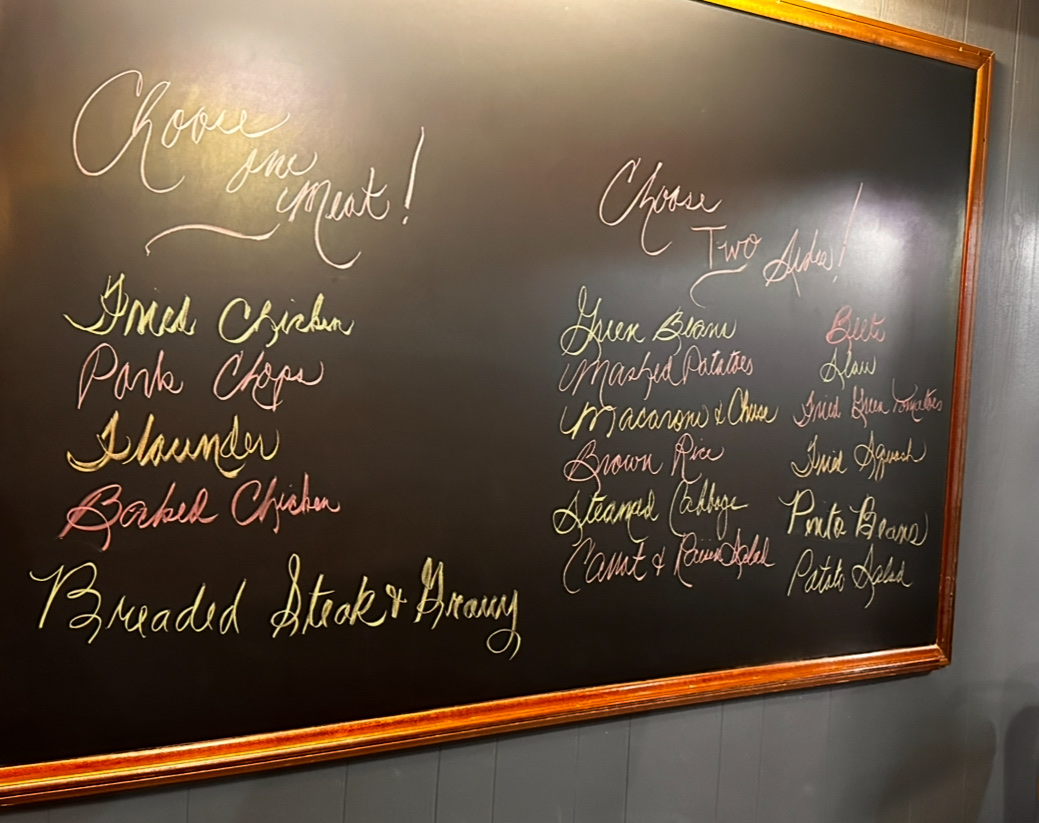 Choose
one
Meat!
Fried Chicken
Pork Chops
Flounder
Baked Chicken
Breaded Steak & Gravy
Choose
Two Sides!
Green Beans
Mashed Potatoes
Macaroni & Cheese
Brown Rice
Steamed Cabbage
Carrot & Raisin Salad
Beets
Slaw
Fried Green Tomatoes
Fried Squash
Pinto Beans
Potato Salad